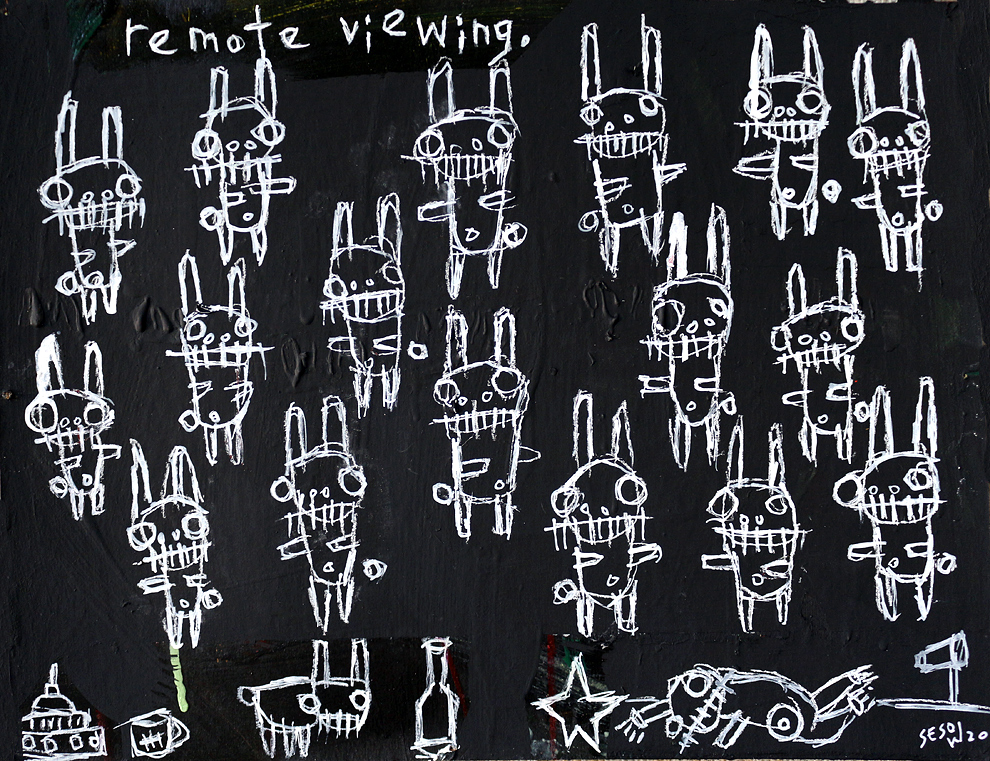 remote viewing.
SESOW 20